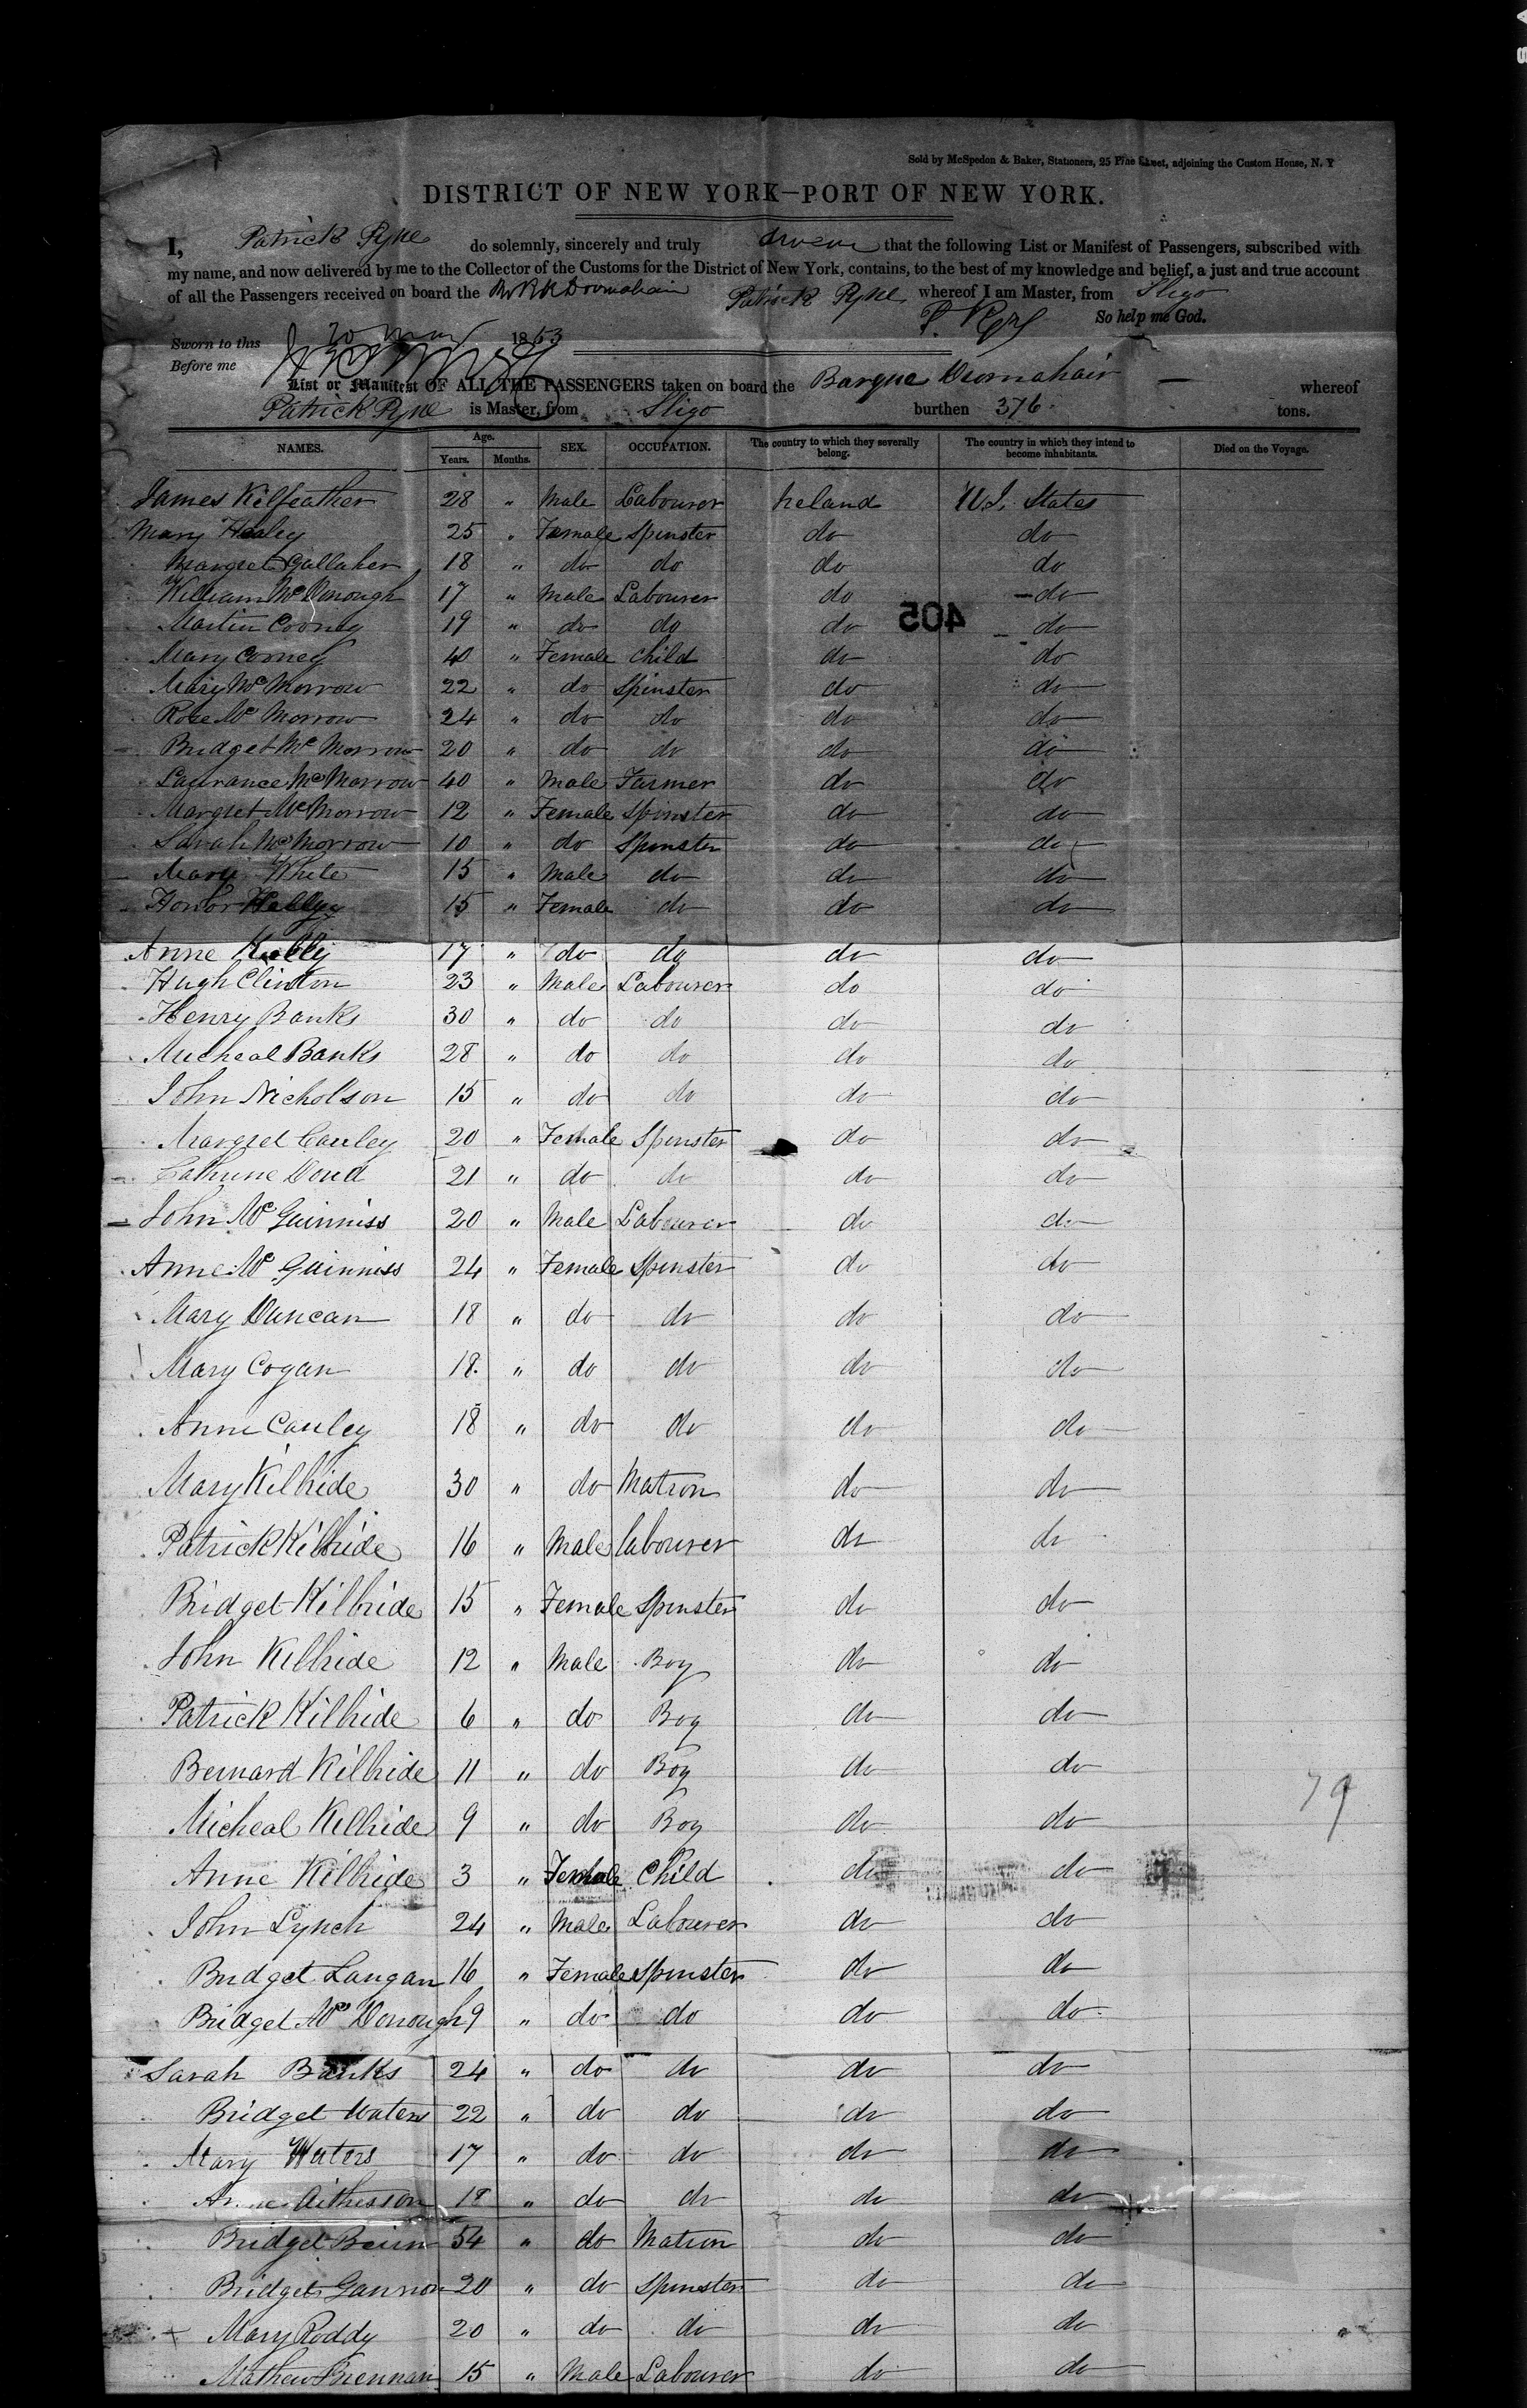 Sold by McSpedon & Baker, Stationers, 25 Pine Street, adjoining the Custom House, N. Y
DISTRICT OF NEW YORK—PORT OF NEW YORK.
I, Patrick Pyne do solemnly, sincerely and truly swear that the following List or Manifest of Passengers, subscribed with
my name, and now delivered by me to the Collector of the Customs for the District of New York, contains, to the best of my knowledge and belief, a just and true account
of all the Passengers received on board the Dromahair Patrick Pyne whereof I am Master, from Sligo
P. Pyne So help me God.
Sworn to this 20 May 1853
Before me
List or Manifest OF ALL THE PASSENGERS taken on board the Barque Dromahair — whereof
Patrick Pyne is Master, from Sligo burthen 376 tons.
NAMES. Age. Years. Months. SEX. OCCUPATION. The country to which they severally belong. The country in which they intend to become inhabitants. Died on the Voyage.
James Kilfeather 28 " Male Labourer Ireland U. States
Mary Healey 25 " Female Spinster do do
Margret Gallaher 18 " do do do do
William McDonough 17 " Male Labourer do do
405
Martin Cooney 19 " do do do do
Mary Corney 40 " Female Child do do
Mary McMorrow 22 " do Spinster do do
Rose McMorrow 24 " do do do do
Bridget McMorrow 20 " do do do do
Laurance McMorrow 40 " Male Farmer do do
Margret McMorrow 12 " Female Spinster do do
Sarah McMorrow 10 " do Spinster do do
Mary White 15 " Male do do do
Honor 15 " Female do do do
Anne Kelly 17 " do do do do
Hugh Clinton 23 " Male Labourer do do
Henry Banks 30 " do do do do
Micheal Banks 28 " do do do do
John Nicholson 15 " do do do do
Margret Cauley 20 " Female Spinster do do
Cathrine Doud 21 " do do do do
John McGuinniss 20 " Male Labourer do do
Anne McGuinniss 24 " Female Spinster do do
Mary Duncan 18 " do do do do
Mary Cogan 18 " do do do do
Anne Cauley 18 " do do do do
Mary Kilbride 30 " do Matron do do
Patrick Kilbride 16 " Male labourer do do
Bridget Kilbride 15 " Female Spinster do do
John Kilbride 12 " Male Boy do do
Patrick Kilbride 6 " do Boy do do
Bernard Kilbride 11 " do Boy do do
79
Micheal Kilbride 9 " do Boy do do
Anne Kilbride 3 " Female Child do do
John Lynch 24 " Male Labourer do do
Bridget Langan 16 " Female Spinster do do
Bridget McDonough 19 " do do do do
Sarah Banks 24 " do do do do
Bridget Waters 22 " do do do do
Mary Waters 17 " do do do do
Anne 18 " do do do do
Bridget Beirn 54 " do Matron do do
Bridget Gannon 20 " do Spinster do do
Mary Roddy 20 " do do do do
Mathew Brennan 15 " Male Labourer do do